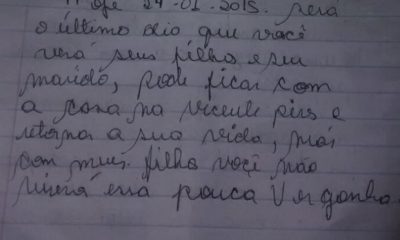 Hoje 24.01.2015. será
o último dia que você
verá seus filho e seu
marido, pode ficar com
a casa na vicente pires e
retorna a sua vida, mas
com meus filho você não
viverá essa pouca Vergonha